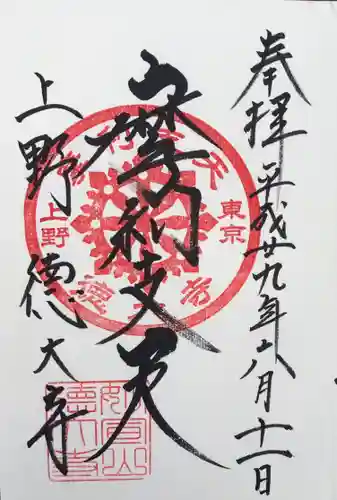 奉拝 平成廿九年八月十一日
摩利支天
上野 徳大寺
東京
上野